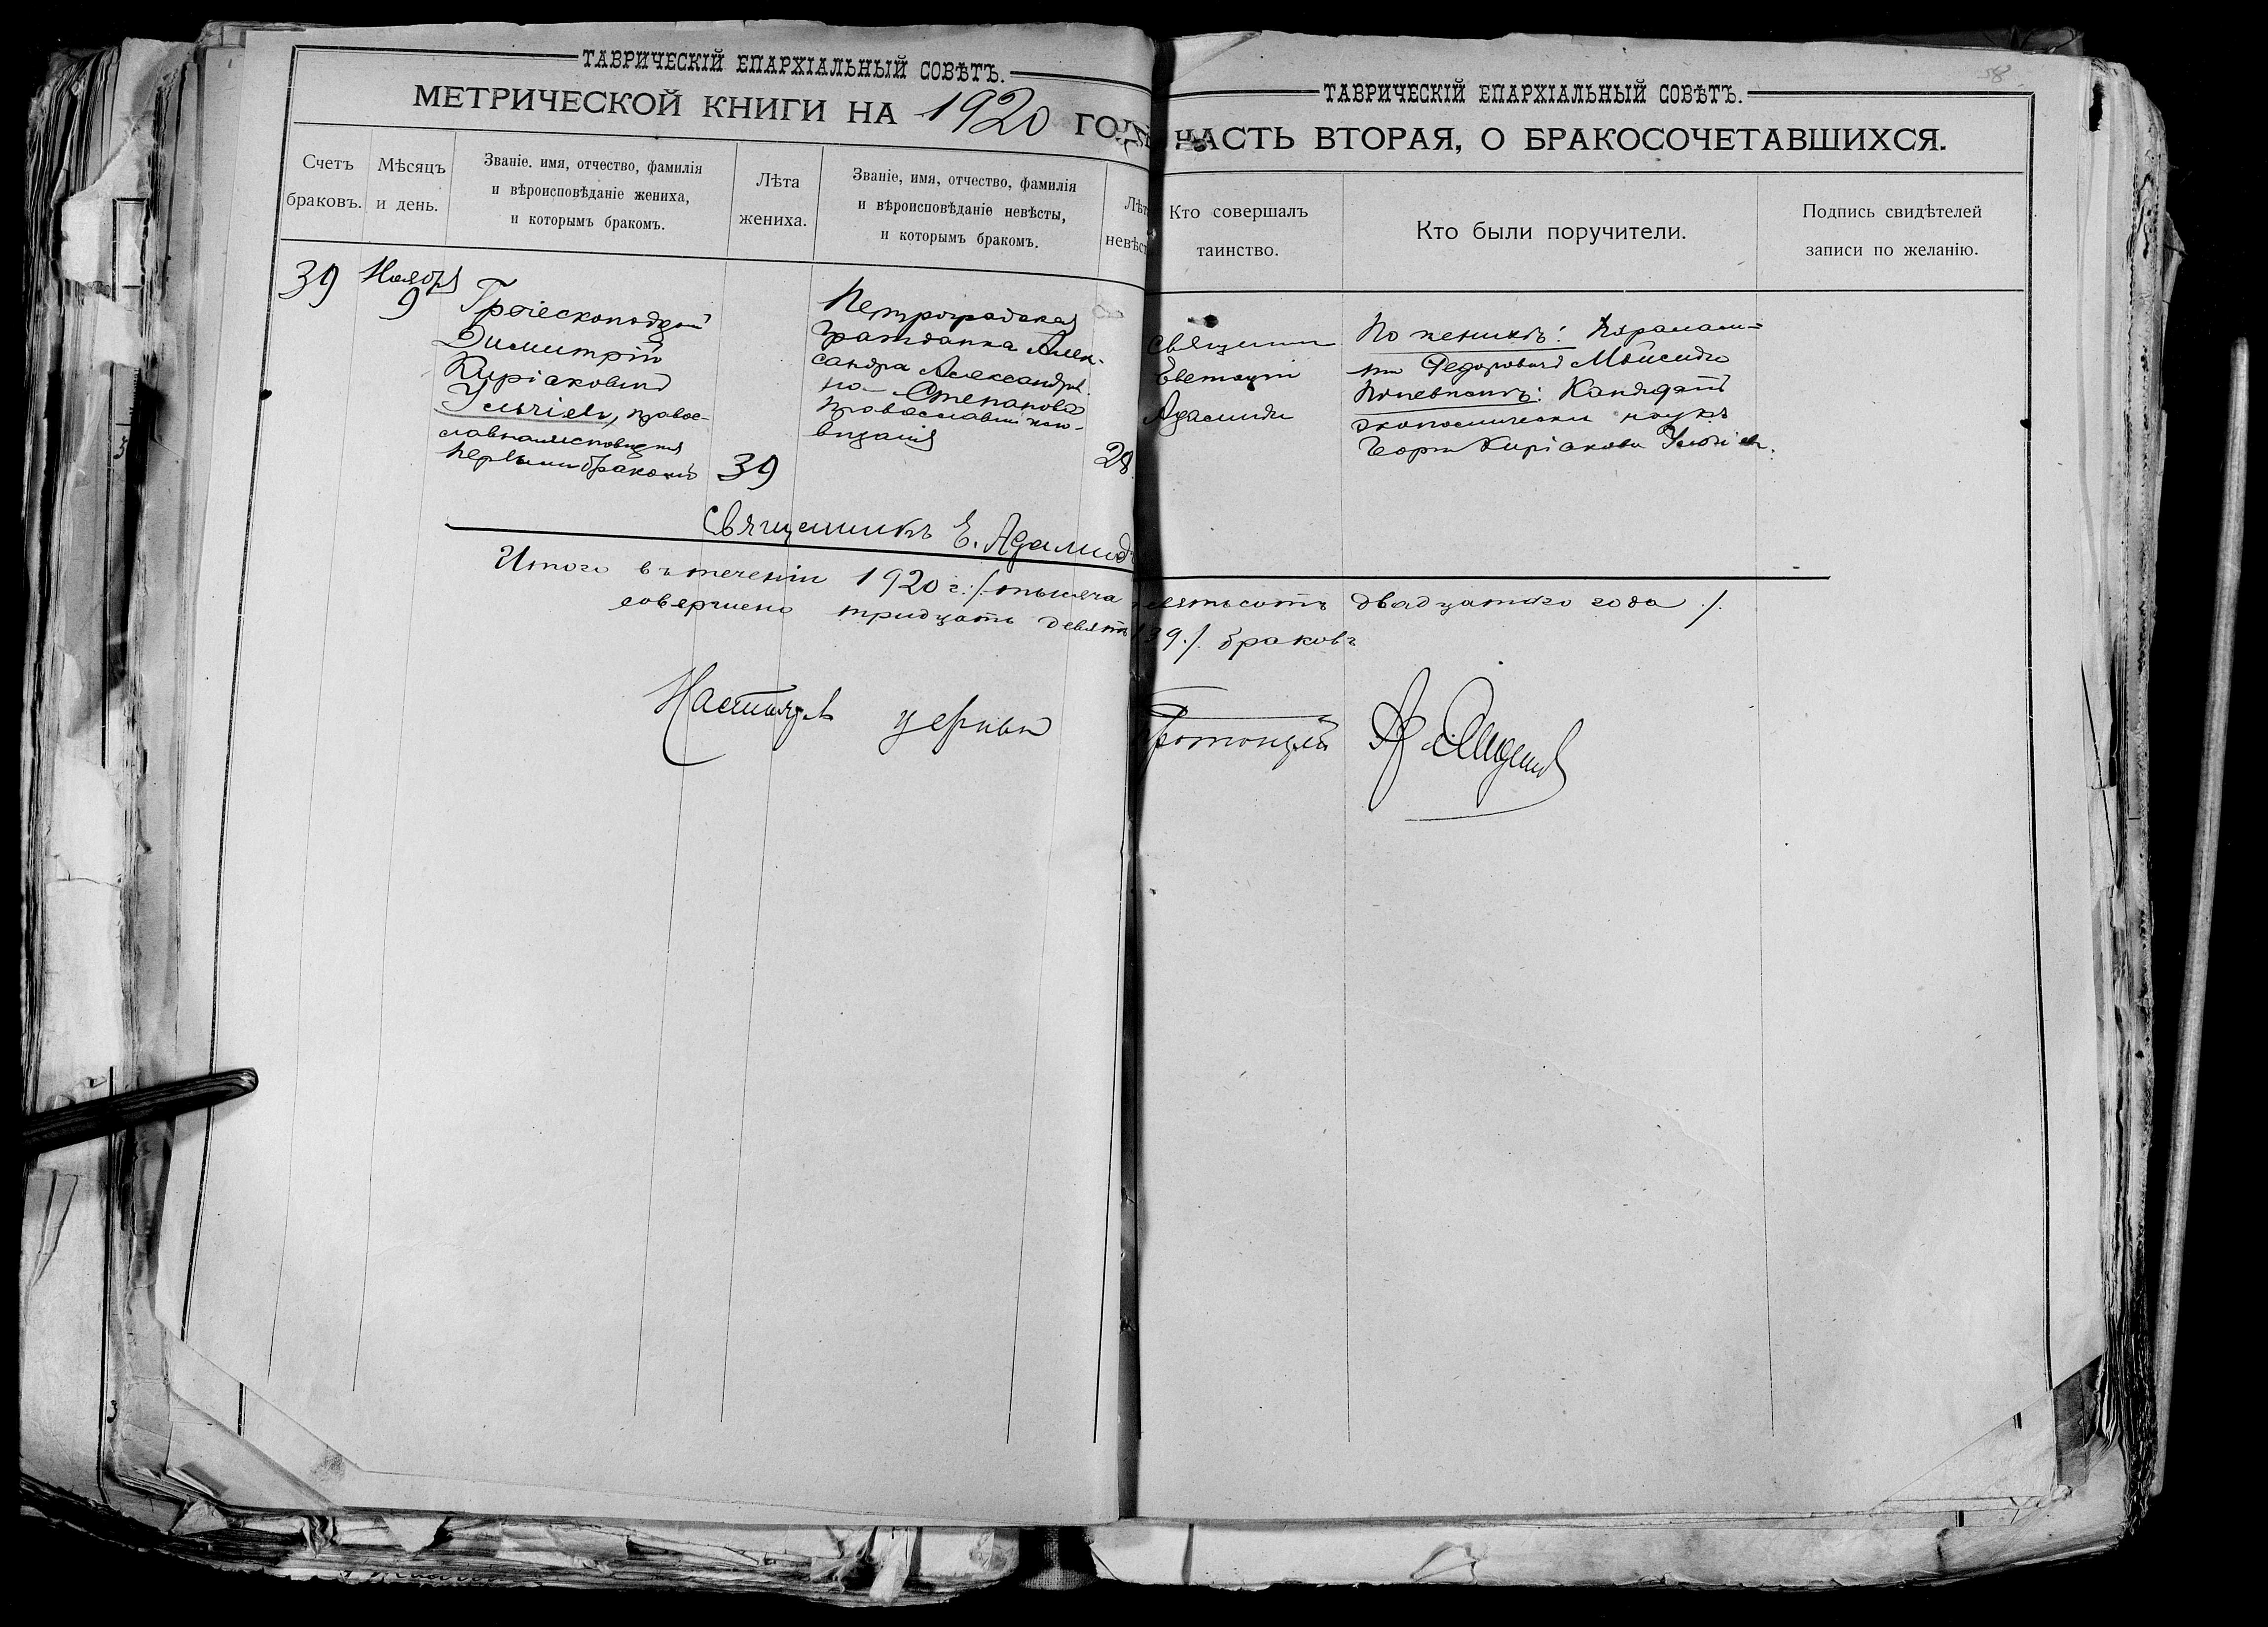 ТАВРИЧЕСКІЙ ЕПАРХІАЛЬНЫЙ СОВѢТЪ.
МЕТРИЧЕСКОЙ КНИГИ НА 1920
Счетъ браковъ.
Мѣсяцъ и день.
Званіе, имя, отчество, фамилія
и вѣроисповѣданіе жениха,
и которымъ бракомъ.
Лѣта жениха.
Званіе, имя, отчество, фамилія
и вѣроисповѣданіе невѣсты,
и которымъ бракомъ.
39
Ноября
9
Димитрій
Киріаковичъ
православнаго исповѣданія
первымъ бракомъ
39
Петроградская
гражданка Алек-
сандра Александров-
на Степанова
православнаго испо-
вѣданія
28
Священникъ Е.
Итого въ теченіи 1920 г. /. тысяча
совершено тридцать девять
Настоятель церкви
58
ТАВРИЧЕСКІЙ ЕПАРХІАЛЬНЫЙ СОВѢТЪ.
ЧАСТЬ ВТОРАЯ, О БРАКОСОЧЕТАВШИХСЯ.
Кто совершалъ
таинство.
Кто были поручители.
Подпись свидѣтелей
записи по желанію.
Священникъ
По женихѣ:
Федоровичъ
По невѣстѣ: Кандидатъ
экономическихъ наукъ
девятьсотъ двадцатаго года ./.
39./. браковъ
Протоіерей